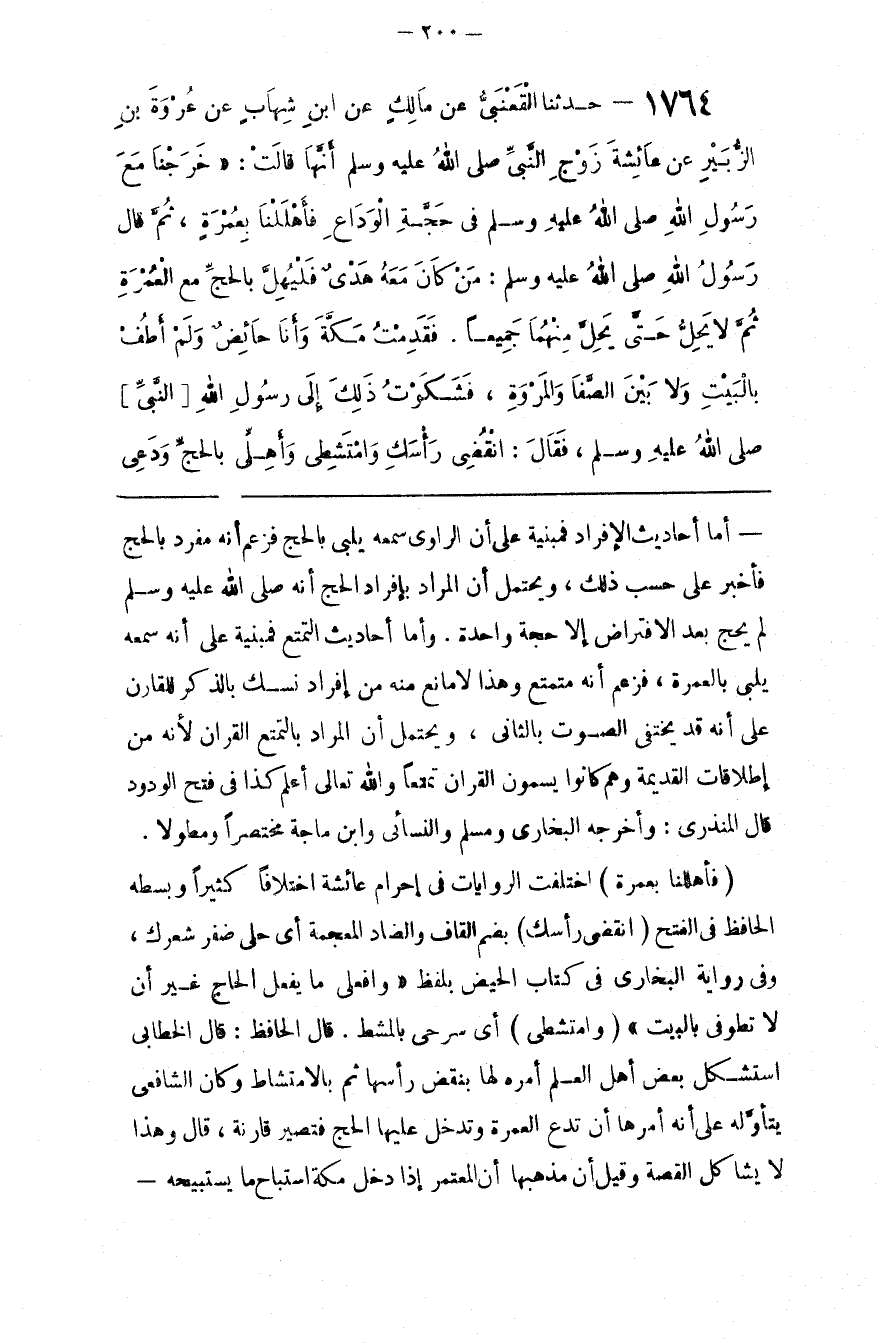 — ٢٠٠ —
١٧٦٤ — حـدثنا الْقَعْنَبِيُّ عن مَالِكٍ عن ابنِ شِهَابٍ عن عُرْوَةَ بنِ
الزُّبَيْرِ عن عَائِشةَ زَوْجِ النَّبيِّ صلى اللهُ عليه وسلم أَنَّهَا قالَتْ : « خَرَجْنَا مَعَ
رَسُولِ اللهِ صلى اللهُ عليهِ وسـلم فى حَجَّـةِ الْوَدَاعِ فأَهْلَلْنَا بِعُمْرَةٍ ، ثُمَّ قال
رَسُولُ اللهِ صلى اللهُ عليه وسلم : مَنْ كَانَ مَعَهُ هَدْىٌ فَلْيُهِلَّ بالحجِّ مع الْعُمْرَةِ
ثُمَّ لا يَحِلُّ حَـتَّى يَحِلَّ مِنْهُمَا جَمِيعـاً . فَقَدِمْتُ مَـكَّةَ وَأَنَا حائِضٌ وَلَمْ أَطُفْ
بالْبَيْتِ وَلا بَيْنَ الصَّفَا وَالمَرْوَةِ ، فَشَـكَوْتُ ذَلِكَ إِلَى رسُولِ اللهِ [ النَّبيِّ ]
صلى اللهُ عليهِ وسـلم ، فَقَالَ : انْقُضِى رَأْسَكِ وَامْتَشِطِى وَأَهِـلِّى بالحجِّ وَدَعِى
— أما أحاديث الإفراد فمبنية على أن الراوى سمعه يلبى بالحج فزعم أنه مفرد بالحج
فأخبر على حسب ذلك ، ويحتمل أن المراد بإفراد الحج أنه صلى الله عليه وسـلم
لم يحج بعد الافتراض إلا حجة واحدة . وأما أحاديث التمتع فمبنية على أنه سمعه
يلبى بالعمرة ، فزعم أنه متمتع وهذا لامانع منه من إفراد نسـك بالذكر للقارن
على أنه قد يختفى الصـوت بالثانى ، ويحتمل أن المراد بالتمتع القران لأنه من
إطلاقات القديمة وهم كانوا يسمون القران تمتعاً والله تعالى أعلم كذا فى فتح الودود
قال المنذرى : وأخرجه البخارى ومسلم والنسائى وابن ماجة مختصراً ومطولا .
( فأهللنا بعمرة ) اختلفت الروايات فى إحرام عائشة اختلافاً كثيراً وبسطه
الحافظ فى الفتح ( انقضى رأسك ) بضم القاف والضاد المعجمة أى حلى ضفر شعرك ،
وفى رواية البخارى فى كتاب الحيض بلفظ « وافعلى ما يفعل الحاج غـير أن
لا تطوفى بالبيت » ( وامتشطى ) أى سرحى بالمشط . قال الحافظ : قال الخطابى
استشـكل بعض أهل العـلم أمره لها بنقض رأسها ثم بالامتشاط وكان الشافعى
يتأوّله على أنه أمرها أن تدع العمرة وتدخل عليها الحج فتصير قارنة ، قال وهذا
لا يشاكل القصة وقيل أن مذهبها أن المعتمر إذا دخل مكة استباح ما يستبيحه —